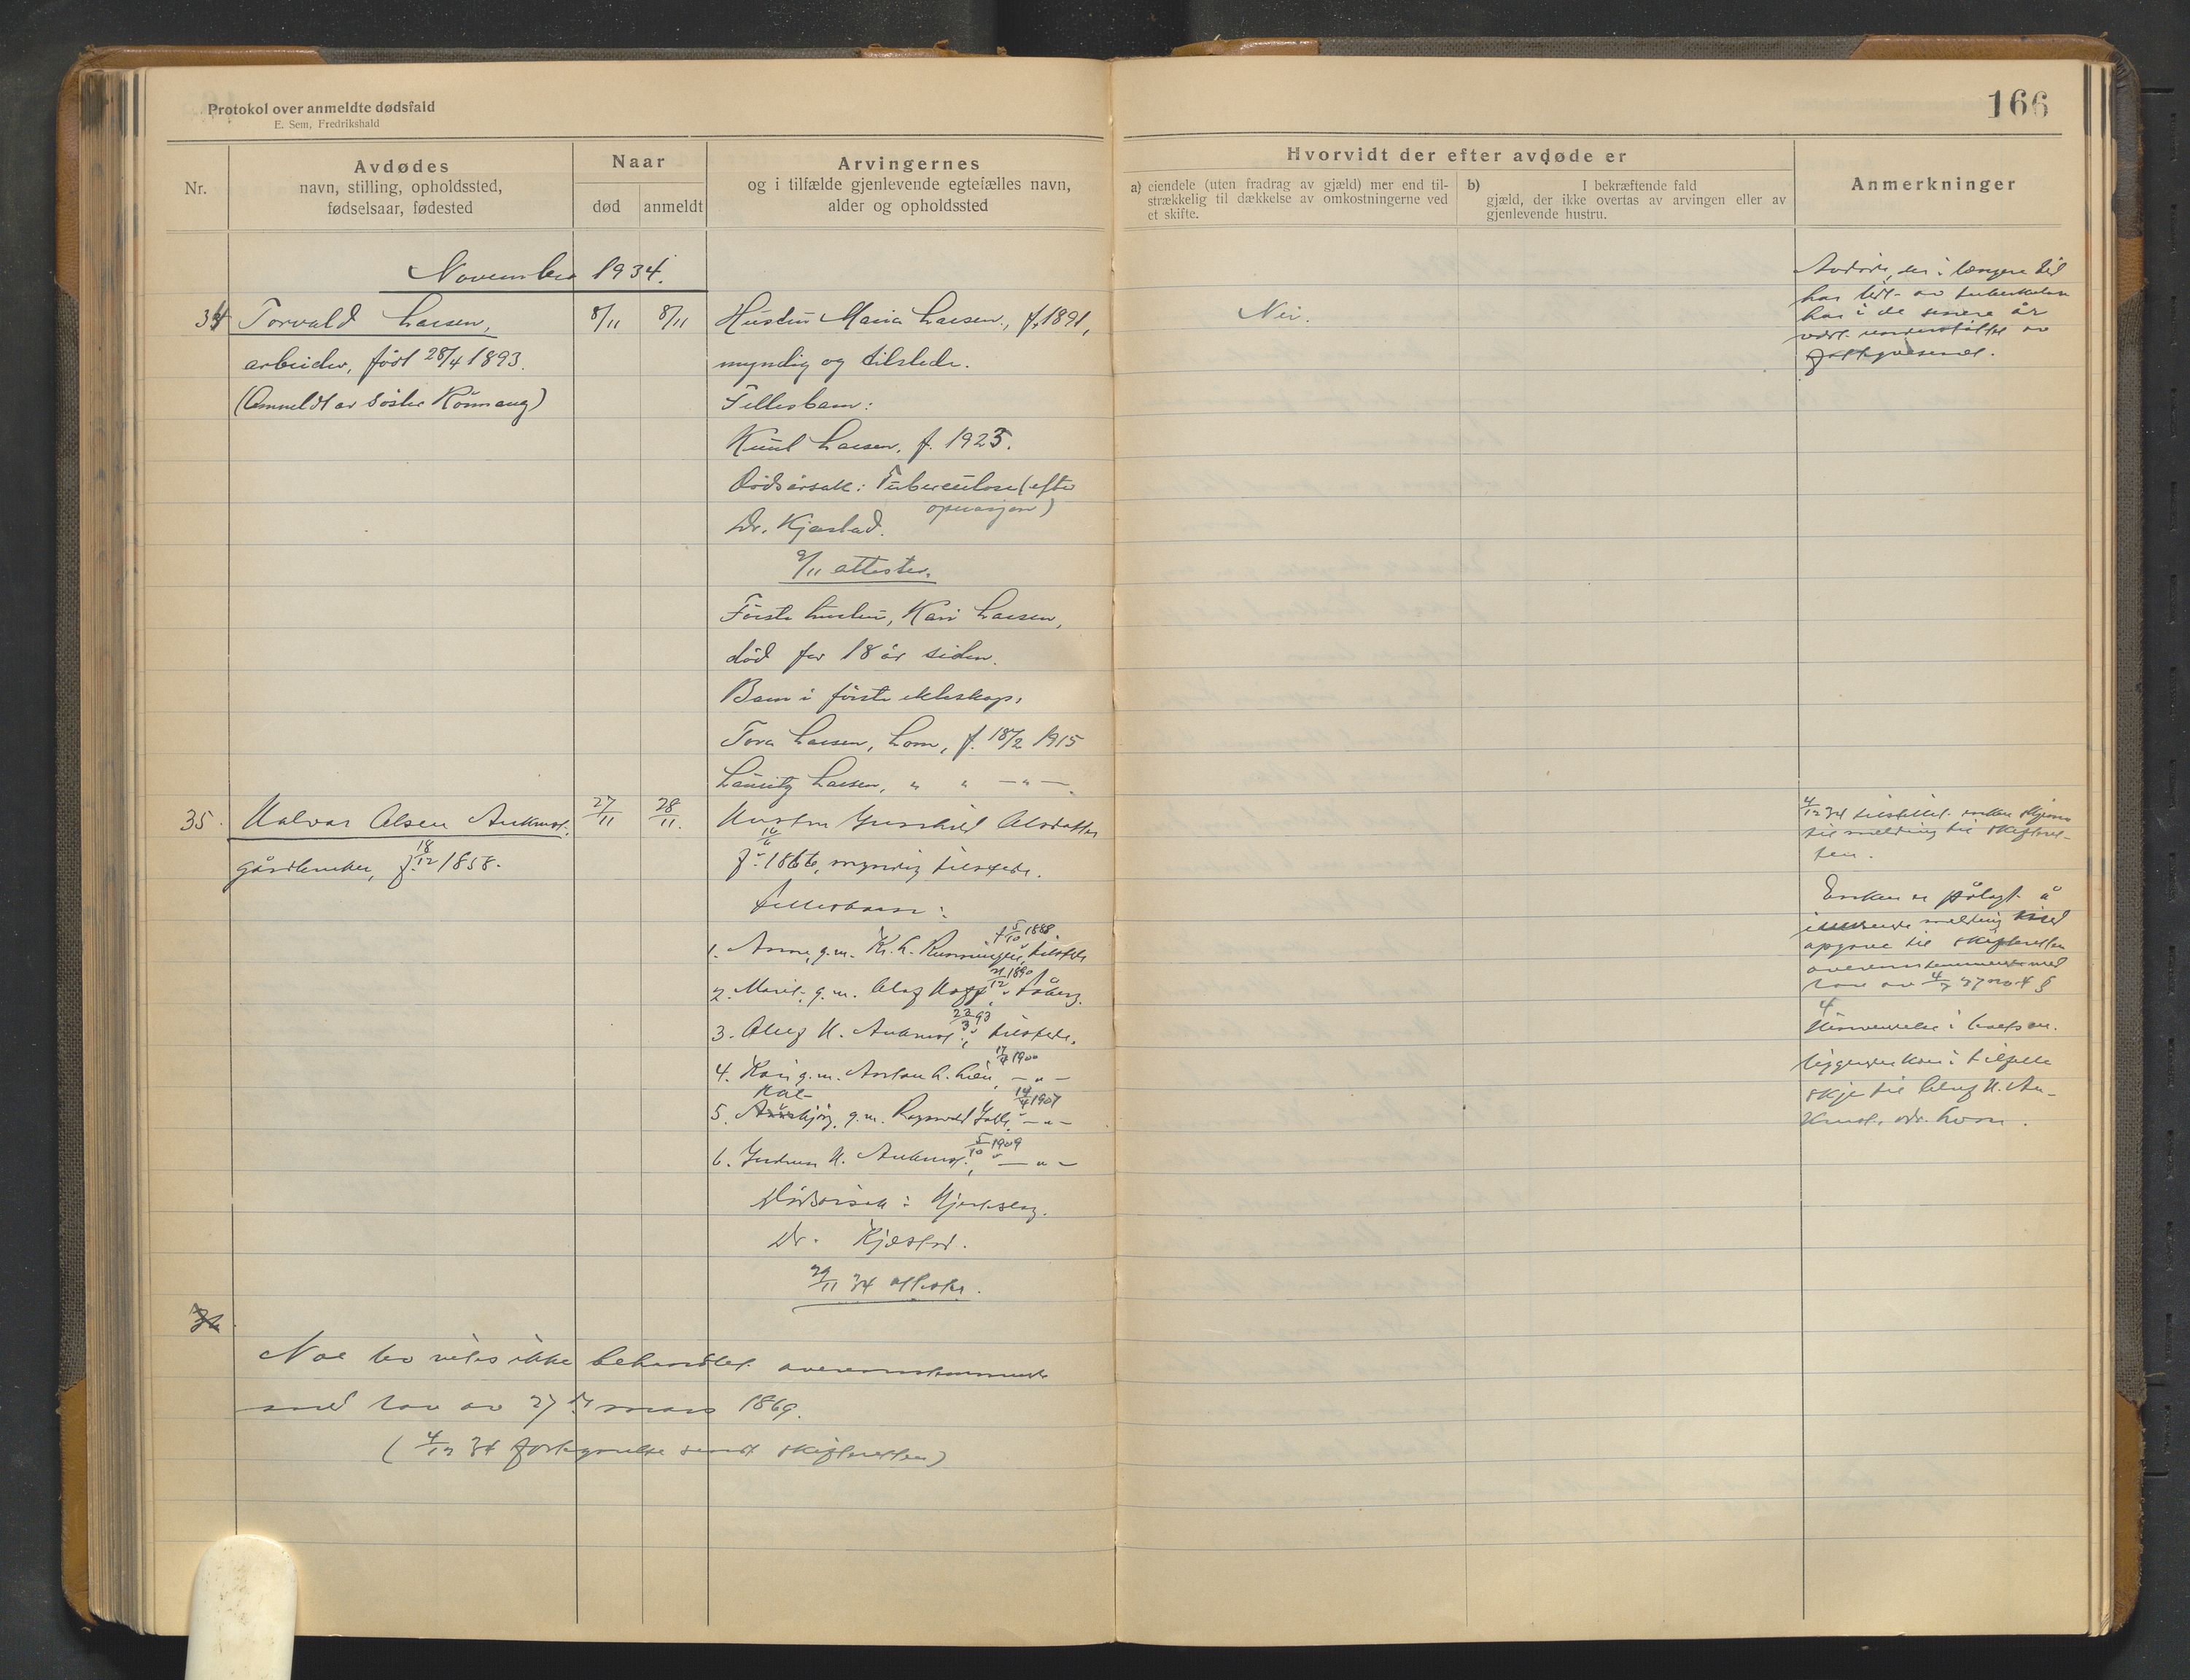 Protokol over anmeldte dødsfald
E. Sem, Fredrikshald
166
Nr.
Avdødes
navn, stilling, opholdssted,
fødselsaar, fødested
Naar
død
anmeldt
Arvingernes
og i tilfælde gjenlevende egtefælles navn,
alder og opholdssted
Hvorvidt der efter avdøde er
a) eiendele (uten fradrag av gjæld) mer end til-
strækkelig til dækkelse av omkostningerne ved
et skifte.
b) I bekræftende fald
gjæld, der ikke overtas av arvingen eller av
gjenlevende hustru.
Anmerkninger
November 1934.
34 Torvald Larsen,
arbeider, født 28/4 1893.
(Anmeldt av søster Rönnaug)
8/11
8/11
Hustru Maria Larsen, f. 1891,
myndig og tilstede.
Fellesbarn:
Knut Larsen, f. 1923.
Dödsårsak: Tuberculose (efter
operasjon)
Dr. Kjæstad.
9/11 attester.
Første hustru, Kari Larsen,
död for 18 år siden.
Barn i første ekteskap:
Tora Larsen, Lom, f. 18/2 1915
Lauritz Larsen, " " — " —
Nei.
Avdøde, der i længere tid
har lidt av tuberkulose
har i de senere år
vært understøttet av
fattigvesenet.
35. Halvar Olsen Aukrust,
gårdbruker, f. 18/12 1858.
27/11
28/11.
Hustru Gunhild Olsdatter
f. 16/6 1866, myndig tilstede.
Fellesbarn:
1. Anna, g.m. Kr. L. f 5/10 1888. tilstede
2. Marit, g.m. Olaf 21/12 1890 Fåberg.
3. Oluf H. Aukrust, 23/3 93 tilstede.
4. Kari g.m. L. Lien, 17/4 1900 — " —
Hal-
5. g.m. Ragnvald 14/4 1907 — " —
6. Gudrun H. Aukrust, 5/10 1909 — " —
Dödsårsak: Hjerteslag.
Dr. Kjæstad.
29/11 34 attester.
4/12 34 tilstillet enken skjema
til melding til skifteret-
ten.
Enken er pålagt å
melding med
opgave til skifteretten
overensstemmende med
lov av 4/7 27 no 4 §
4
Henvendelse i
i tilfelle
skje til Oluf H. Au-
krust, adr. Lom.
Noe bo vites ikke behandlet overensstemmende
med lov av 27de mars 1869.
(4/12 34 sendt skifteretten)